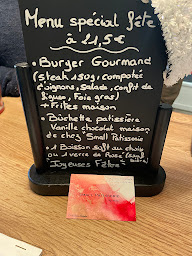 Menu spécial fête
à 21,5€
• Burger Gourmand
(steak 150g, compotée
d'oignons, Salade, confit de
figues, Foie gras)
+ Frites maison
• Bûchette patissière
Vanille chocolat maison
de chez Small Patisserie
• 1 Boisson soft au choix
ou 1 verre de Rosé
Joyeuses Fêtes